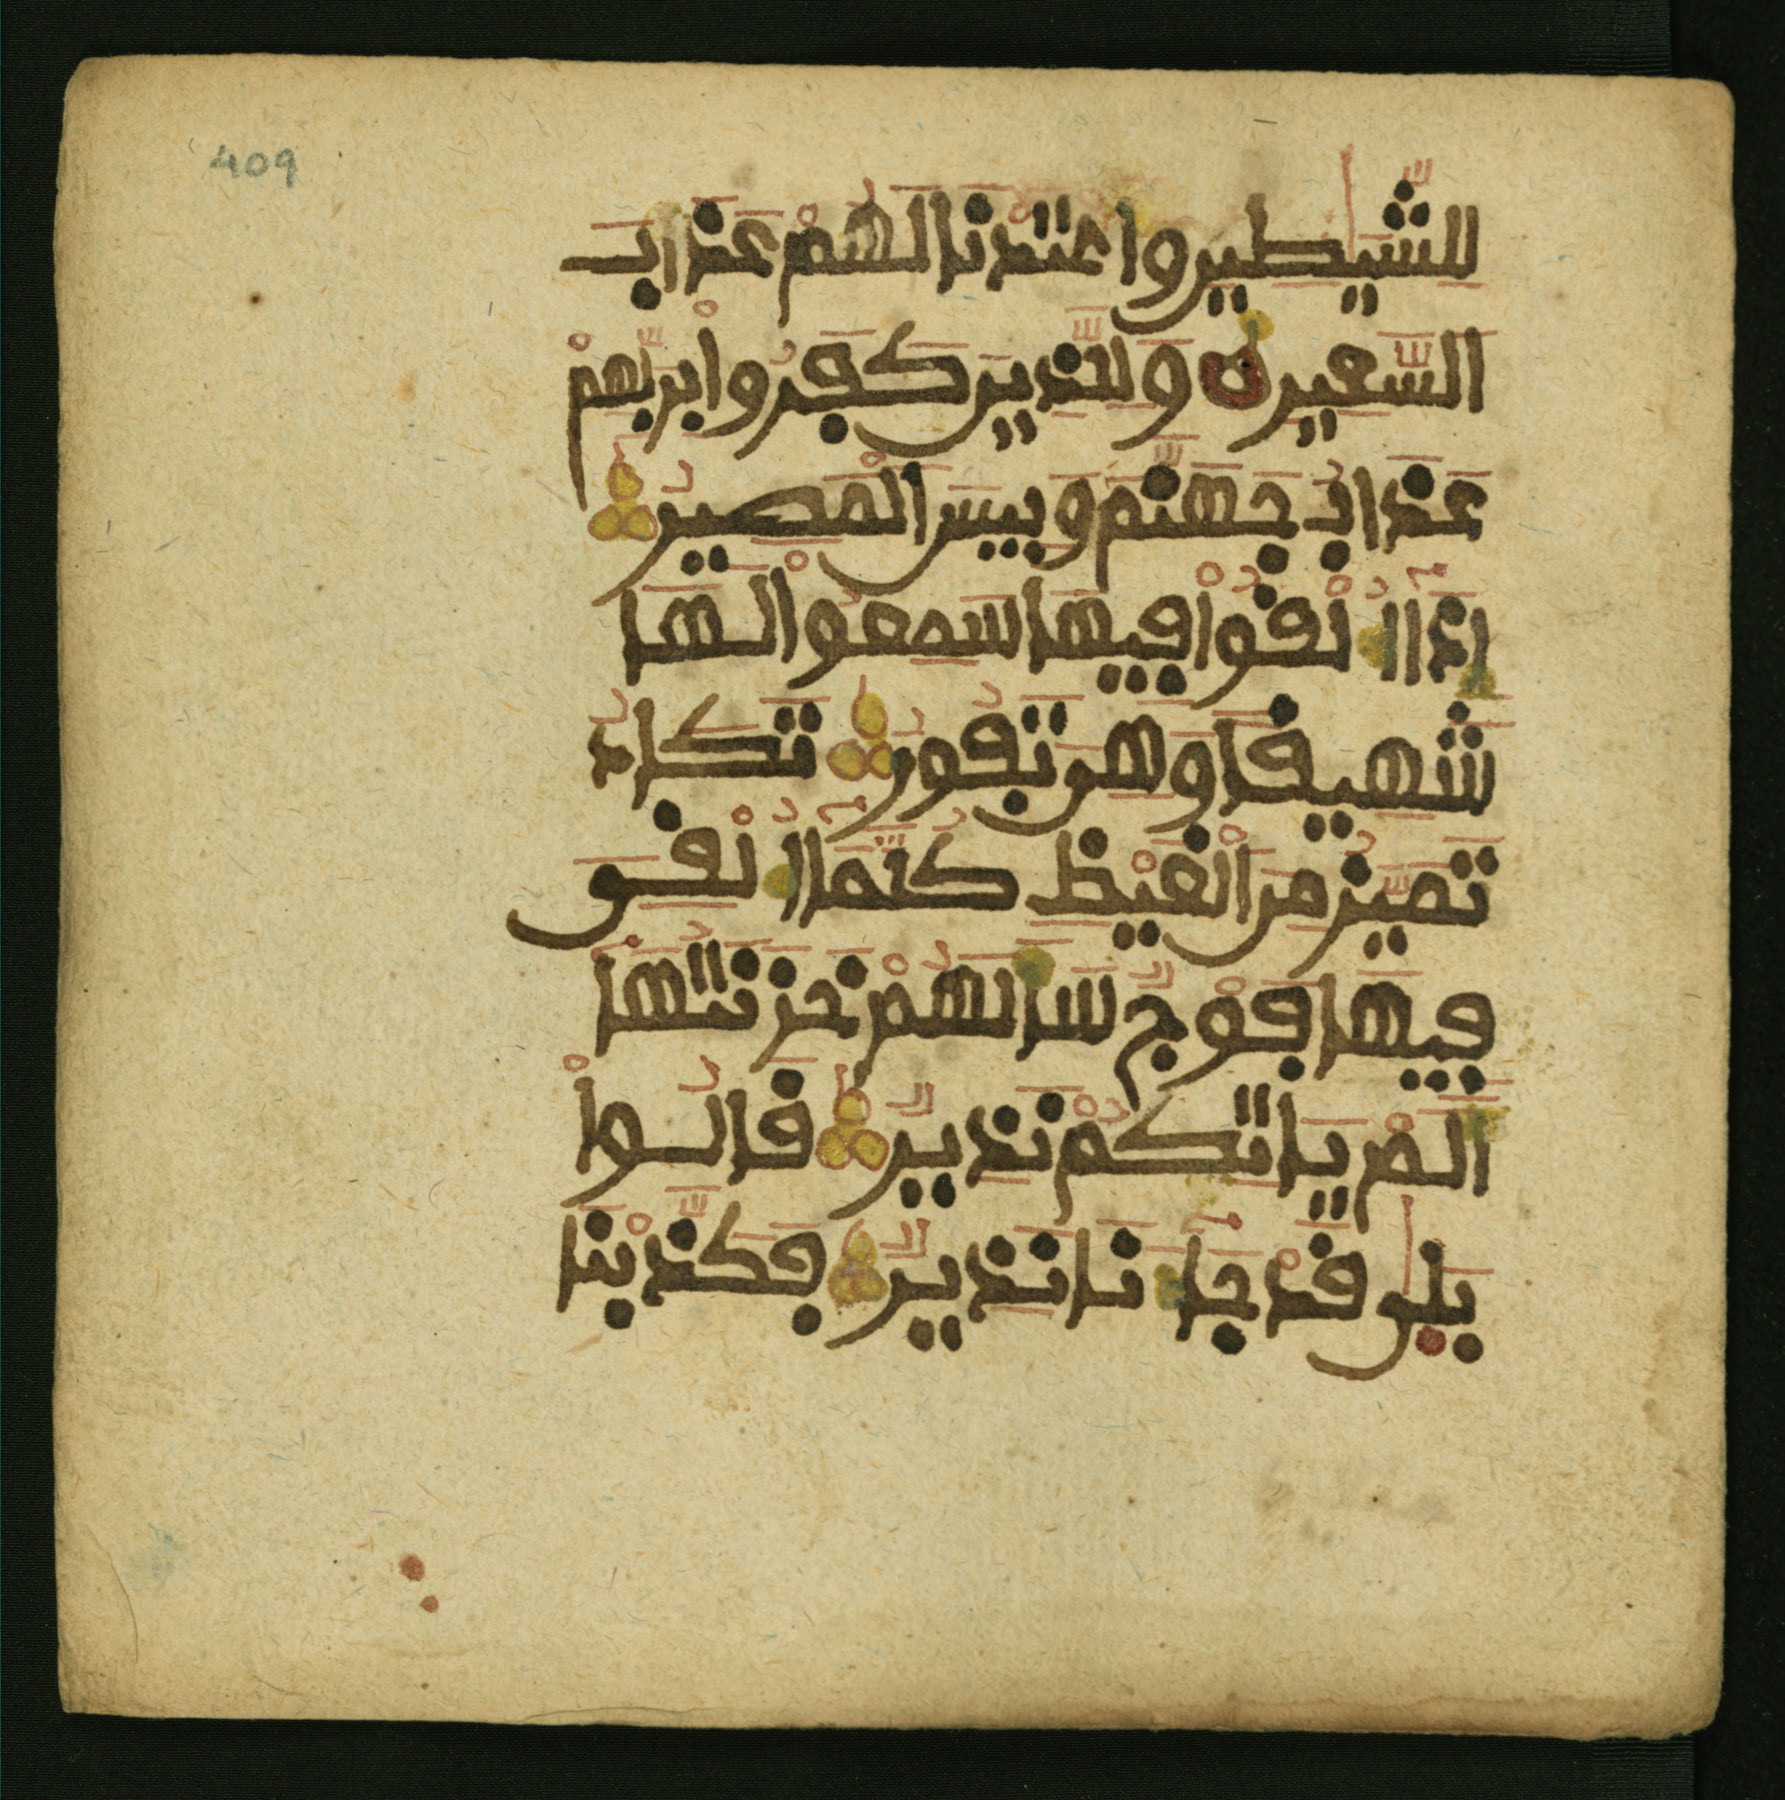 409
للشيطين واعتدنا لهم عذاب
السعير وللذين كفروا بربهم
عذاب جهنم وبيس المصير
اذا القوا فيها سمعوا لها
شهيقا وهي تفور تكاد
تميز من الغيظ كلما القى
فيها فوج سالهم خزنتها
الم ياتكم نذير قالوا
بلى قد جانا نذير فكذبنا